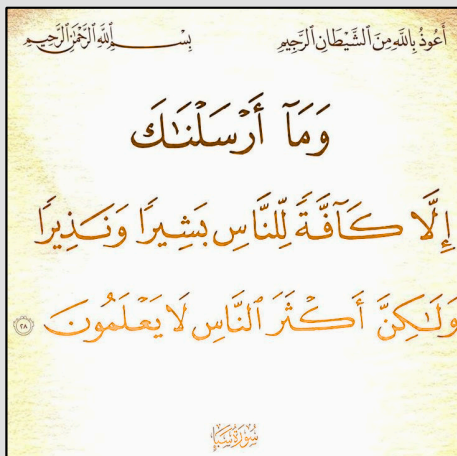 أَعُوذُ بِاللَّهِ مِنَ الشَّيْطَانِ الرَّجِيمِ بِسْمِ اللَّهِ الرَّحْمَٰنِ الرَّحِيمِ
وَمَآ أَرْسَلْنَٰكَ
إِلَّا كَآفَّةً لِّلنَّاسِ بَشِيرًا وَنَذِيرًا
وَلَٰكِنَّ أَكْثَرَ ٱلنَّاسِ لَا يَعْلَمُونَ ٢٨
سُورَةُ سَبَإٍ